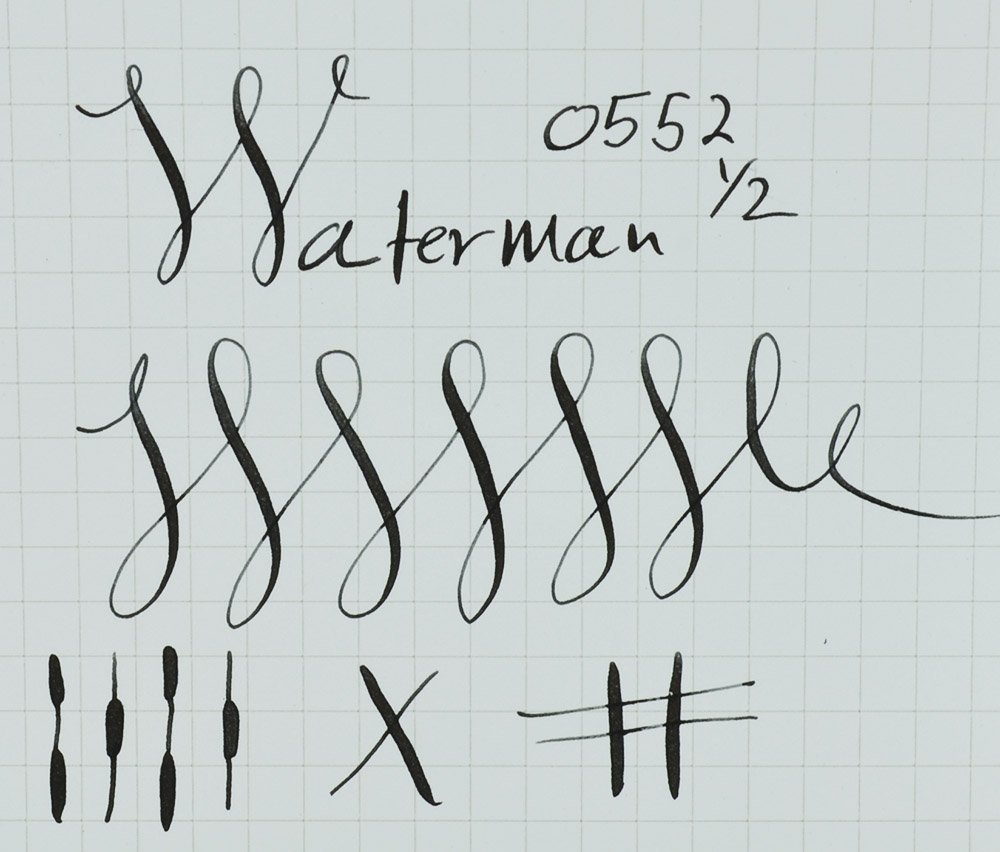 Waterman 0552
1/2
X #